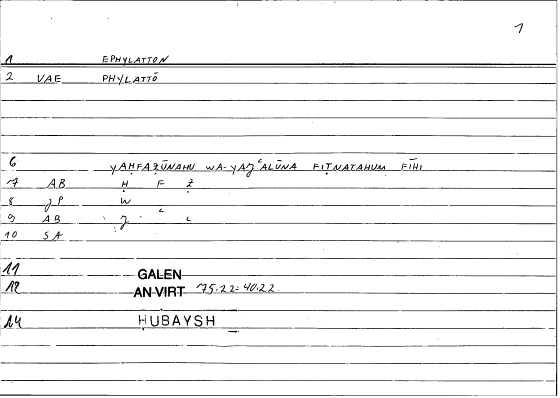 1
1 EPHYLATTON
2 VAE PHYLATTŌ
6 YAḤFAẒŪNAHU WA-YAǦʿALŪNA FIṬNATAHUM FĪHI
7 AB Ḥ F Ẓ
8 JP W
9 AB Ǧ ʿ L
10 SA
11 GALEN
12 AN·VIRT 75.22=40.22.
14 HUBAYSH